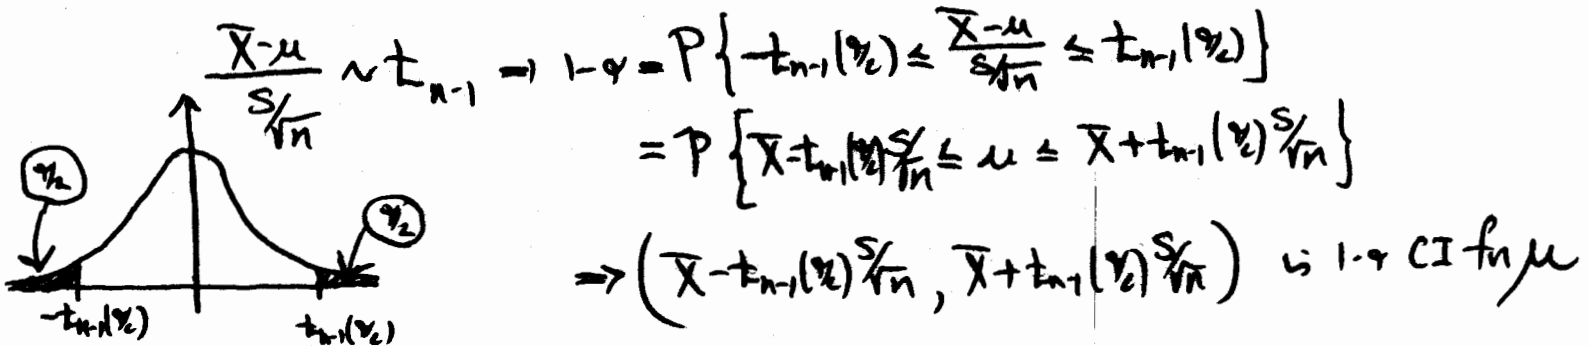 X̄-μ / S/√n ~ t_{n-1} ⇒ 1-α = P{-t_{n-1}(α/2) ≤ X̄-μ / S/√n ≤ t_{n-1}(α/2)}
= P{X̄-t_{n-1}(α/2) S/√n ≤ μ ≤ X̄+t_{n-1}(α/2) S/√n}
α/2
α/2
⇒ (X̄-t_{n-1}(α/2) S/√n, X̄+t_{n-1}(α/2) S/√n) is 1-α CI for μ
-t_{n-1}(α/2) t_{n-1}(α/2)